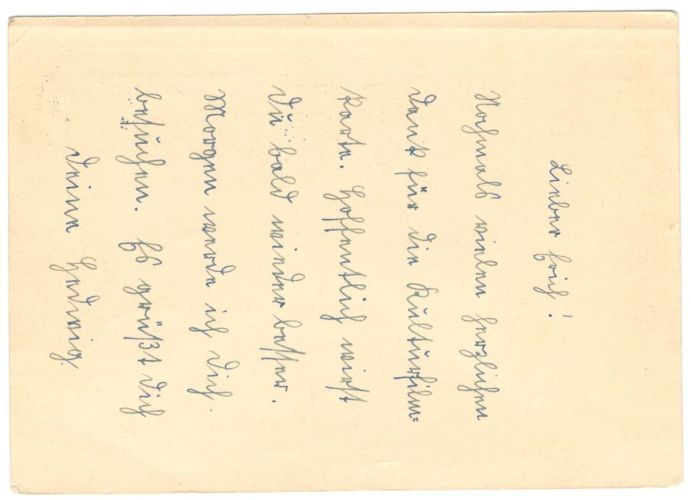 Lieber Erich!
Nochmals vielen herzlichen
Dank für die Kulturfilm=
karte. Hoffentlich wirst
Du bald wieder besser.
Morgen werde ich Dich
besuchen. Es grüßt Dich
Deine Hedwig.